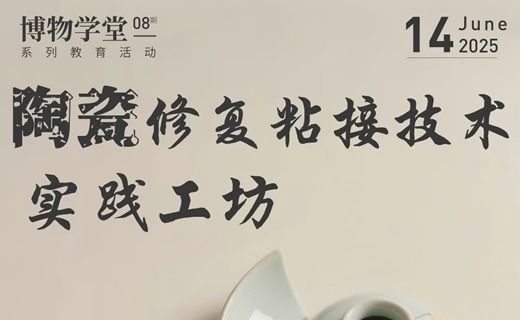 博物学堂 08期
系列教育活动
14 June 2025
陶瓷修复粘接技术
实践工坊